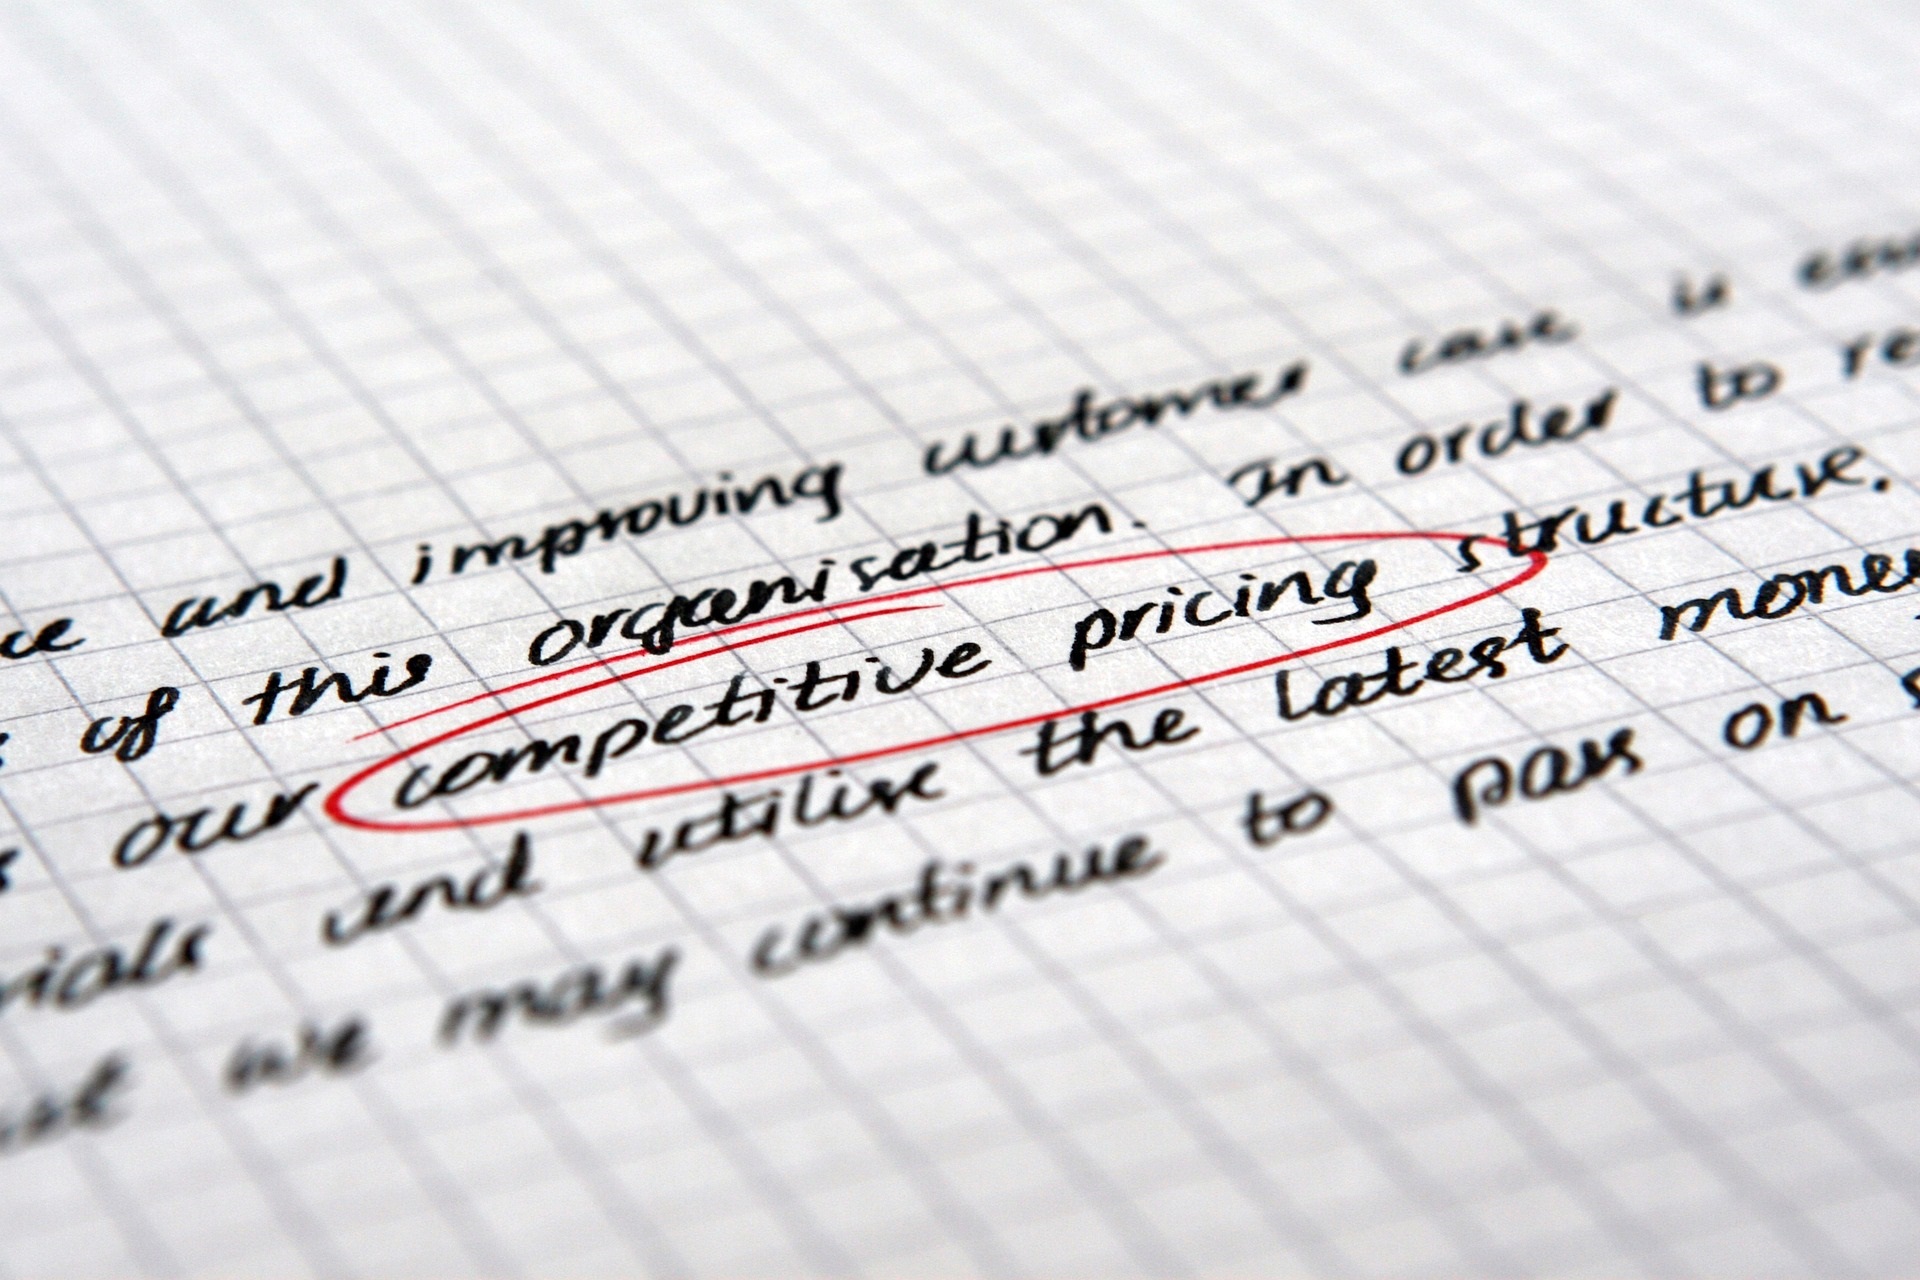 and improving customer care is
of this organisation. In order to re
our competitive pricing structure.
and utilise the latest mone
we may continue to pass on